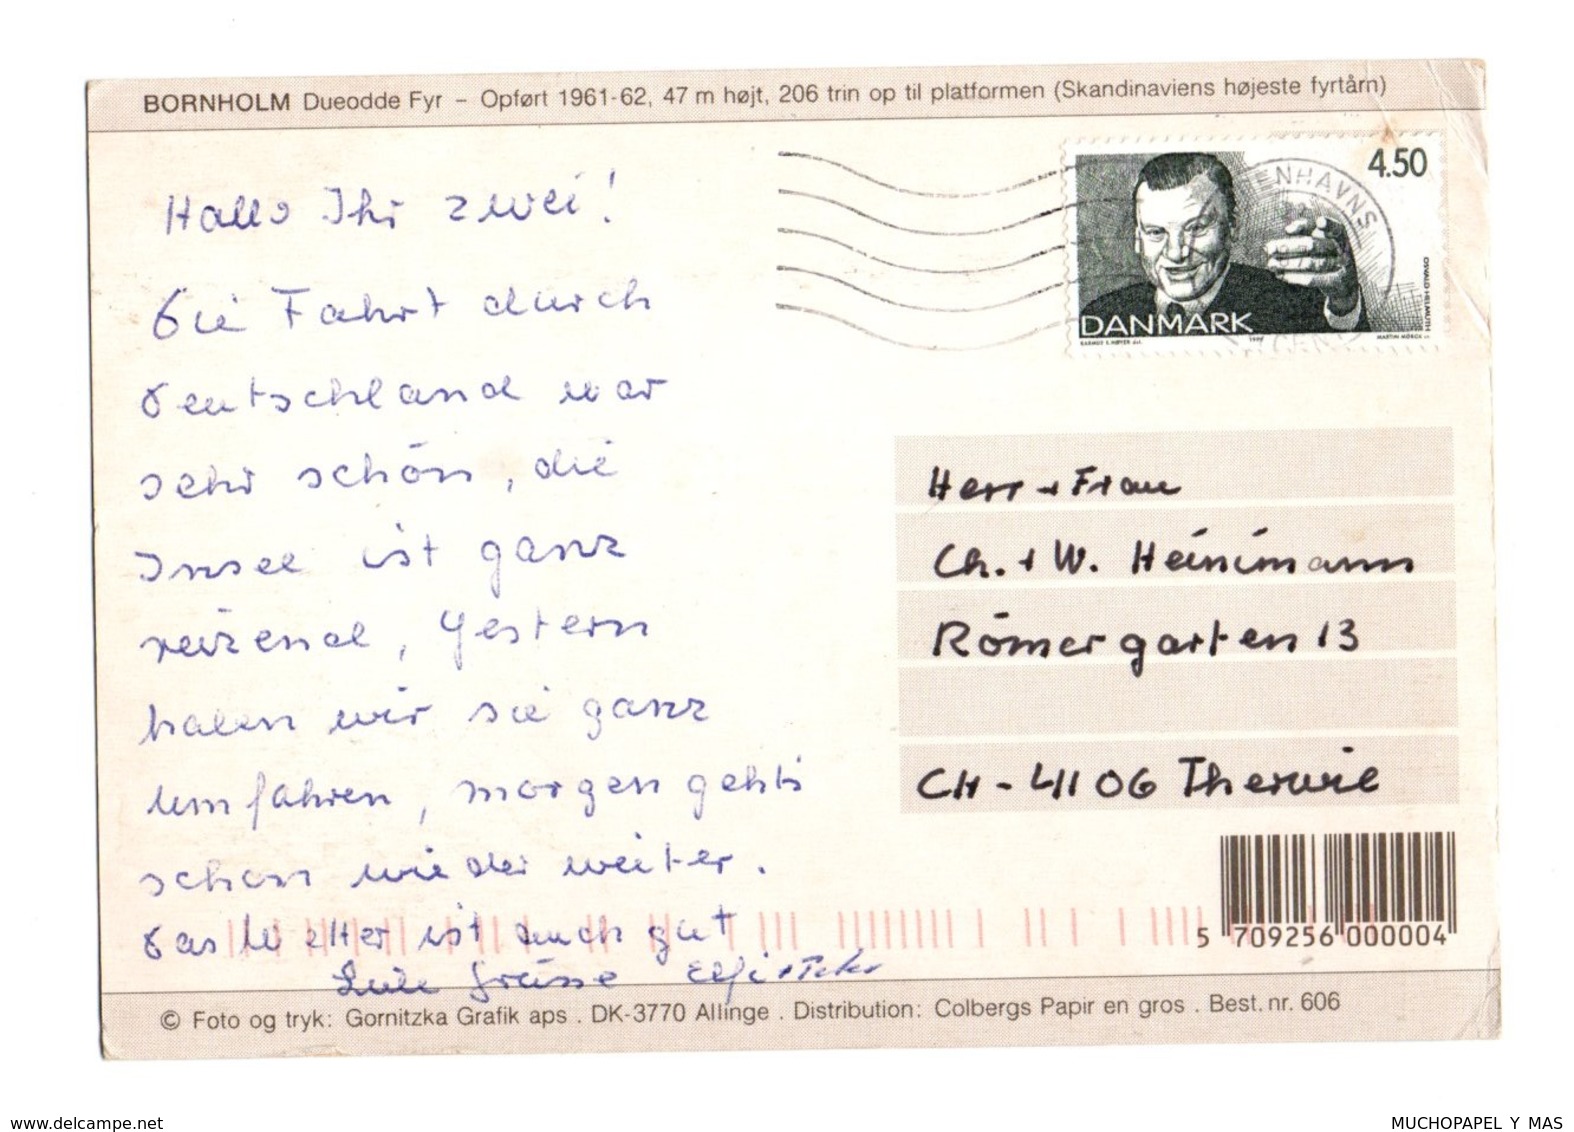 BORNHOLM Dueodde Fyr – Opført 1961-62, 47 m højt, 206 trin op til platformen (Skandinaviens højeste fyrtårn)
Hallo Ihr zwei!
Die Fahrt durch
Deutschland war
sehr schön, die
Insel ist ganz
reizend, Gestern
haben wir sie ganz
umfahren, morgen gehts
schon wieder weiter.
Das Wetter ist auch gut
Liebe Grüsse Elfi +
4.50
ENHAVNS
OSVALD HELMUTH
DANMARK
MARTIN MÖRCK
Herr + Frau
Ch. + W. Heinimann
Römergarten 13
CH - 4106 Therwil
5 709256 000004
© Foto og tryk: Gornitzka Grafik aps . DK-3770 Allinge . Distribution: Colbergs Papir en gros . Best. nr. 606
www.delcampe.net
MUCHOPAPEL Y MAS